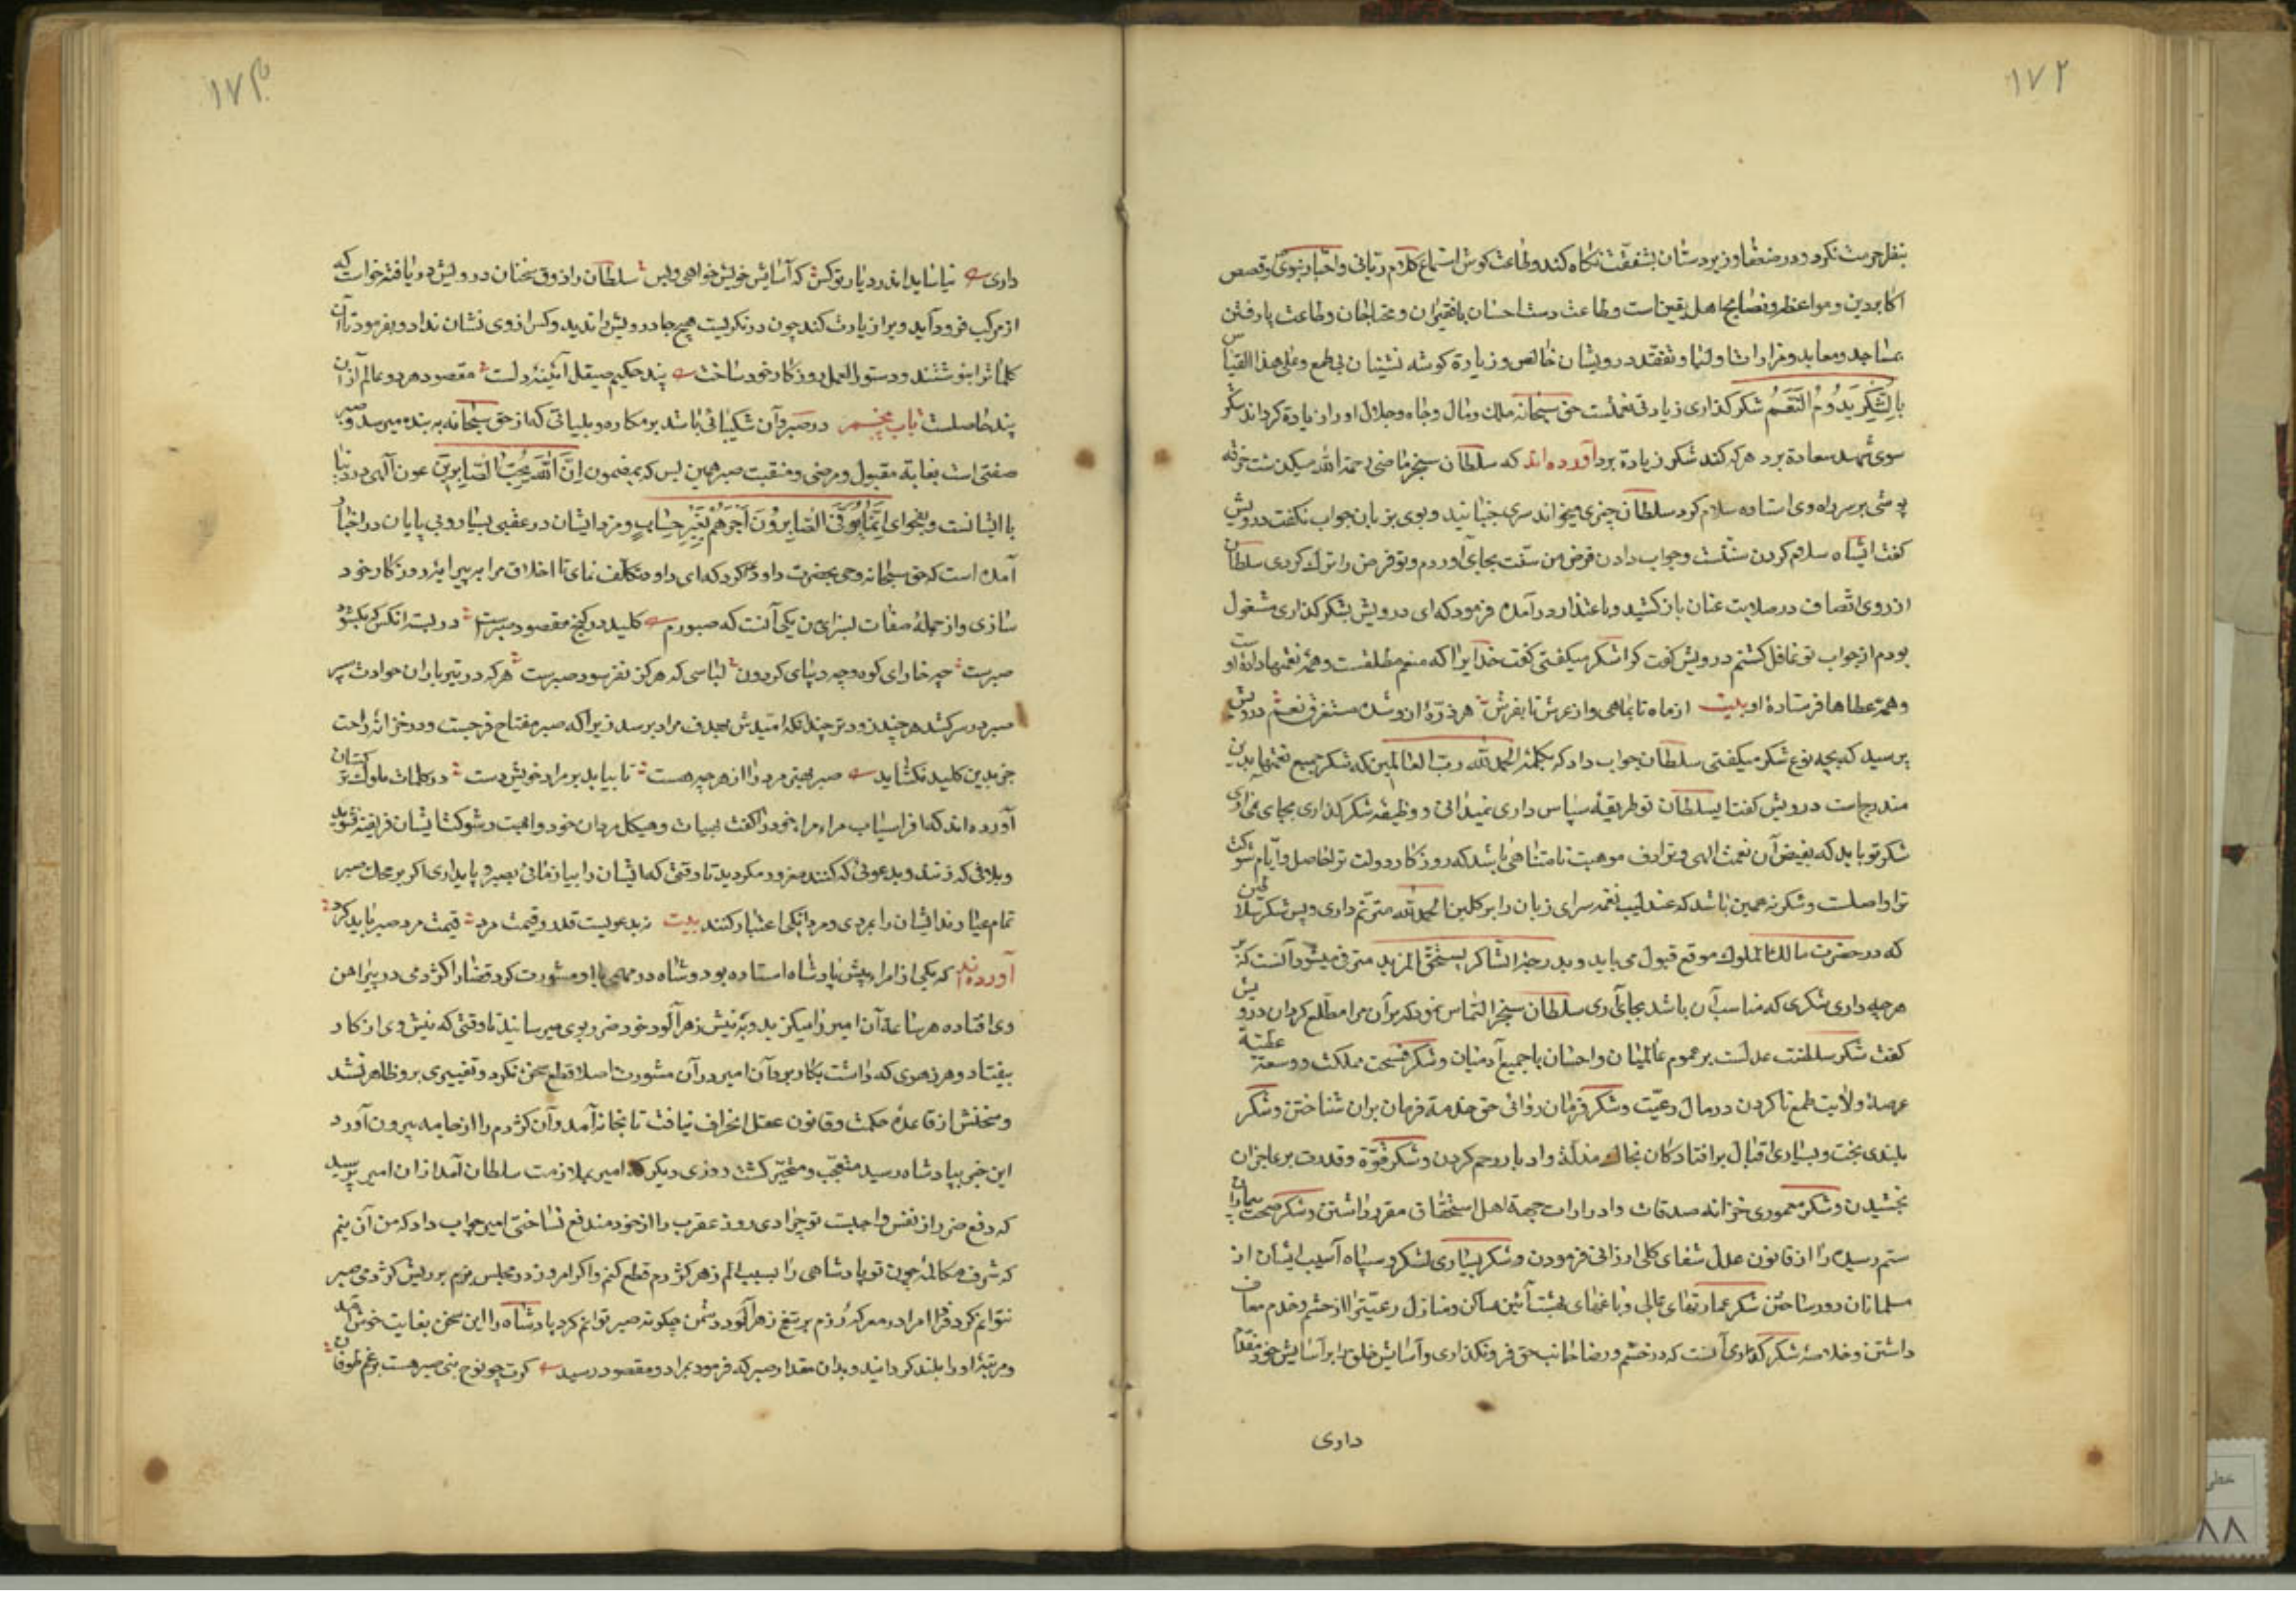 ۱۷۲
بنظر حرمت نکرد و در ضعفا و زیردستان بشفقت نکاه کند وطاعت کوش استماع کلام ربانی واخبار نبوی وقصص
اکابر دین ومواعظ ونصایح اهل یقین است وطاعت دست احسان با فقیران ومحتاجان وطاعت پا رفتن
بمساجد ومعابد ومزارات اولیا وتفقد درویشان خالص وزیارة کوشه نشینان بی طمع وعلی هذا القیاس
بالشکر یدوم النعم شکر کذاری زیادتی نعمتست حق سبحانه ملک ومال وجاه وجلال او را زیادة کرداند شکر
سوی شهد سعادة برد هر که کند شکر زیادة برد آورده اند که سلطان سنجر ماضی رحمة الله میکذشت خرقه
پوشی بر سر راه وی استاده سلام کرد سلطان چیزی میخواند سری جنبانید وبوی بزبان جواب نکفت درویش
کفت ایشاه سلام کردن سنتست وجواب دادن فرض من سنت بجای آوردم وتو فرض را ترک کردی سلطان
از روی انصاف در صلابت عنان باز کشید وباعتذار درآمده فرمود که ای درویش بشکر کذاری مشغول
بودم از جواب تو غافل کشتم درویش کفت کرا شکر میکفتی کفت خدایرا که منعم مطلقست وهمه نعمتها دادهٔ اوست
وهمه عطاها فرستادهٔ او بیت از ماه تا بماهی واز عرش تا بفرش هر ذرهٔ ازو شده مستغرق نعم درویش
پرسید که بچه نوع شکر میکفتی سلطان جواب داد که بکلمهٔ الحمد لله رب العالمین که شکر جمیع نعمتها بدین
مندرجست درویش کفت ایسلطان تو طریقهٔ سپاس داری نمیدانی و وظیفه شکر کذاری بجای نمی آوری
شکر تو باید که بفیض آن نعمت الهی وترادف موهبت نامتناهی باشد که روزکار دولت ترا حاصل وایام شوکت
ترا واصلست وشکر نه همین باشد که عندلیب نغمه سرای زبان را بر کلبن الحمد لله مترنم داری وبس شکر سلاطین
که در حضرت مالک الملوک موقع قبول می یابد و بدرجهٔ الشاکر یستحق المزید مترقی میشود آنست که بر
هر چه داری شکری که مناسب آن باشد بجای آری سلطان سنجر التماس نمود که بر آن مرا مطلع کردان درویش
کفت شکر سلطنت عدلست بر عموم عالمیان واحسان با جمیع آدمیان وشکر فسحت مملکت ووسعت
عرصهٔ ولایت طمع ناکردن در مال رعیت وشکر فرمان روائی حق خدمة فرمان بران شناختن وشکر
بلندی بخت وبسیاری اقبال بر افتادکان بخاک مذلة وادبار رحم کردن وشکر قوة وقدرت بر عاجزان
بخشیدن وشکر معموری خزانه صدقات وادرارات جهة اهل استحقاق مقرر داشتن وشکر صحت بیماران
ستم رسیده را از قانون عدل شفای کلی ارزانی فرمودن وشکر بسیاری لشکر وسپاه آسیب ایشان از
مسلمانان دور ساختن شکر عمارتهای عالی وباغهای بهشت آئین مساکن ومنازل رعیت را از حشم وخدم معاف
داشتن وخلاصهٔ شکر کذاری آنست که در خشم ورضا جانب حق فرو نکذاری وآسایش خلق را بر آسایش خود مقدم
داری
۱۷۳
داری نیاساید اندر دیار تو کس که آسایش خویش خواهی وبس سلطان را ذوق سخنان درویش دریافته خواست که
از مرکب فرود آید ویرا زیارت کند چون در نکریست هیچ جا درویش را ندید وکس از وی نشان نداد وبفرمود تا آن
کلمات را بنوشتند ودستور العمل روزکار خود ساخت پند حکیم صیقل آئینهٔ دلست مقصود هر دو عالم از آن
پند حاصلست باب پنجم در صبر وآن شکیبائی باشد بر مکاره وبلیاتی که از حق سبحانه به بنده میرسد وصبر
صفتی است بغایة مقبول ومرضی ومنقبت صبر همین بس که بمضمون ان الله یحب الصابرین عون الهی در دنیا
با ایشانست وبفحوای انما یوفی الصابرون اجرهم بغیر حساب ومزد ایشان در عقبی بسیار وبی پایان در اخبار
آمده است که حق سبحانه وحی بحضرت داود کرد که ای داود تکلف نمای تا اخلاق مرا پیرایهٔ روزکار خود
سازی واز جملهٔ صفات بسزای من یکی آنست که صبورم کلید در کنج مقصود صبرست در بسته آنکس که بکشود
صبرست چه خارای کوه وچه دیبای کردون لباسی که هرکز نفرسود صبرست هر که در تیرباران حوادث سپر
صبر در سر کشد هر چند زودتر خدنک امیدش بهدف مراد برسد زیرا که صبر مفتاح فرجست ودر خزانهٔ راحت
جز بدین کلید نکشاید صبر بهتر مرد را از هر چه هست تا بیابد بر مراد خویش دست در کلمات ملوک ترکستان
آورده اند که افراسیاب مراء خود را کفت بسیات وهیکل مردان خود واهبت وشوکت ایشان فریفته نشوید
وبلافی که زنند وبدعوئی که کنند مغرور مکردید تا وقتی که ایشان را بیازمائی بصبر وپایداری اکر بر محک صبر
تمام عیارند ایشان را بمردی ومردانکی اعتبار کنند بیت نه بدعویست قدر وقیمت مرد قیمت مرد صبر باید کرد
آورده اند که یکی از امرا پیش پادشاه استاده بود وشاه در مهمی با او مشورت کرد قضا را کژدمی در پیراهن
وی افتاده هر ساعة آن امیر را میکزید وبه نیش زهر آلود خود ضرر بوی میرسانید تا وقتی که نیش وی از کار
بیفتاد وهر زهری که داشت بکار برد آن امیر در آن مشورت اصلا قطع سخن نکرد وتغییری برو ظاهر نشد
وسخنش از قاعدهٔ حکمت وقانون عقل انحراف نیافت تا بخانه آمد وآن کژدم را از جامه بیرون آورد
این خبر بپادشاه رسید متعجب ومتحیر کشت روزی دیکر که امیر بملازمت سلطان آمد از آن امیر پرسید
که دفع ضرر از نفس واجبست تو چرا دی روز عقرب را از خود مندفع نساختی امیر جواب داد که من آن نیم
که شرف مکالمهٔ چون تو پادشاهی را بسبب الم زهر کژدم قطع کنم واکر امروز در مجلس بزم بر نیش کژدمی صبر
نتوانم کرد فردا در معرکهٔ رزم بر تیغ زهر آلود دشمن چکونه صبر توانم کرد پادشاه را این سخن بغایت خوش آمد
ومرتبهٔ او را بلند کردانید وبدان مقدار صبر که فرمود بمراد ومقصود رسید کرت چو نوح نبی صبر هست بر غم طوفان